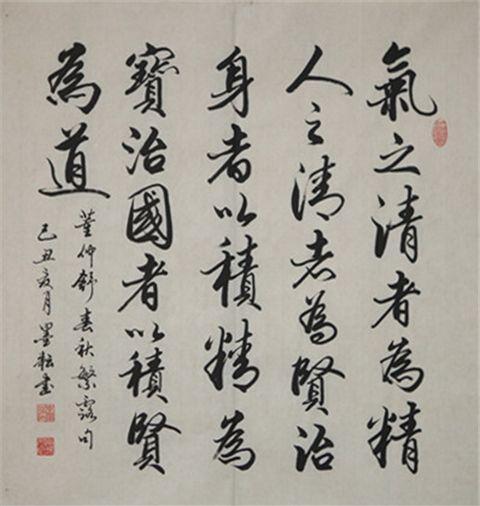 氣之清者為精
人之清者為賢治
身者以積精為
寶治國者以積賢
為道
董仲舒春秋繁露句
己丑亥月墨耘書